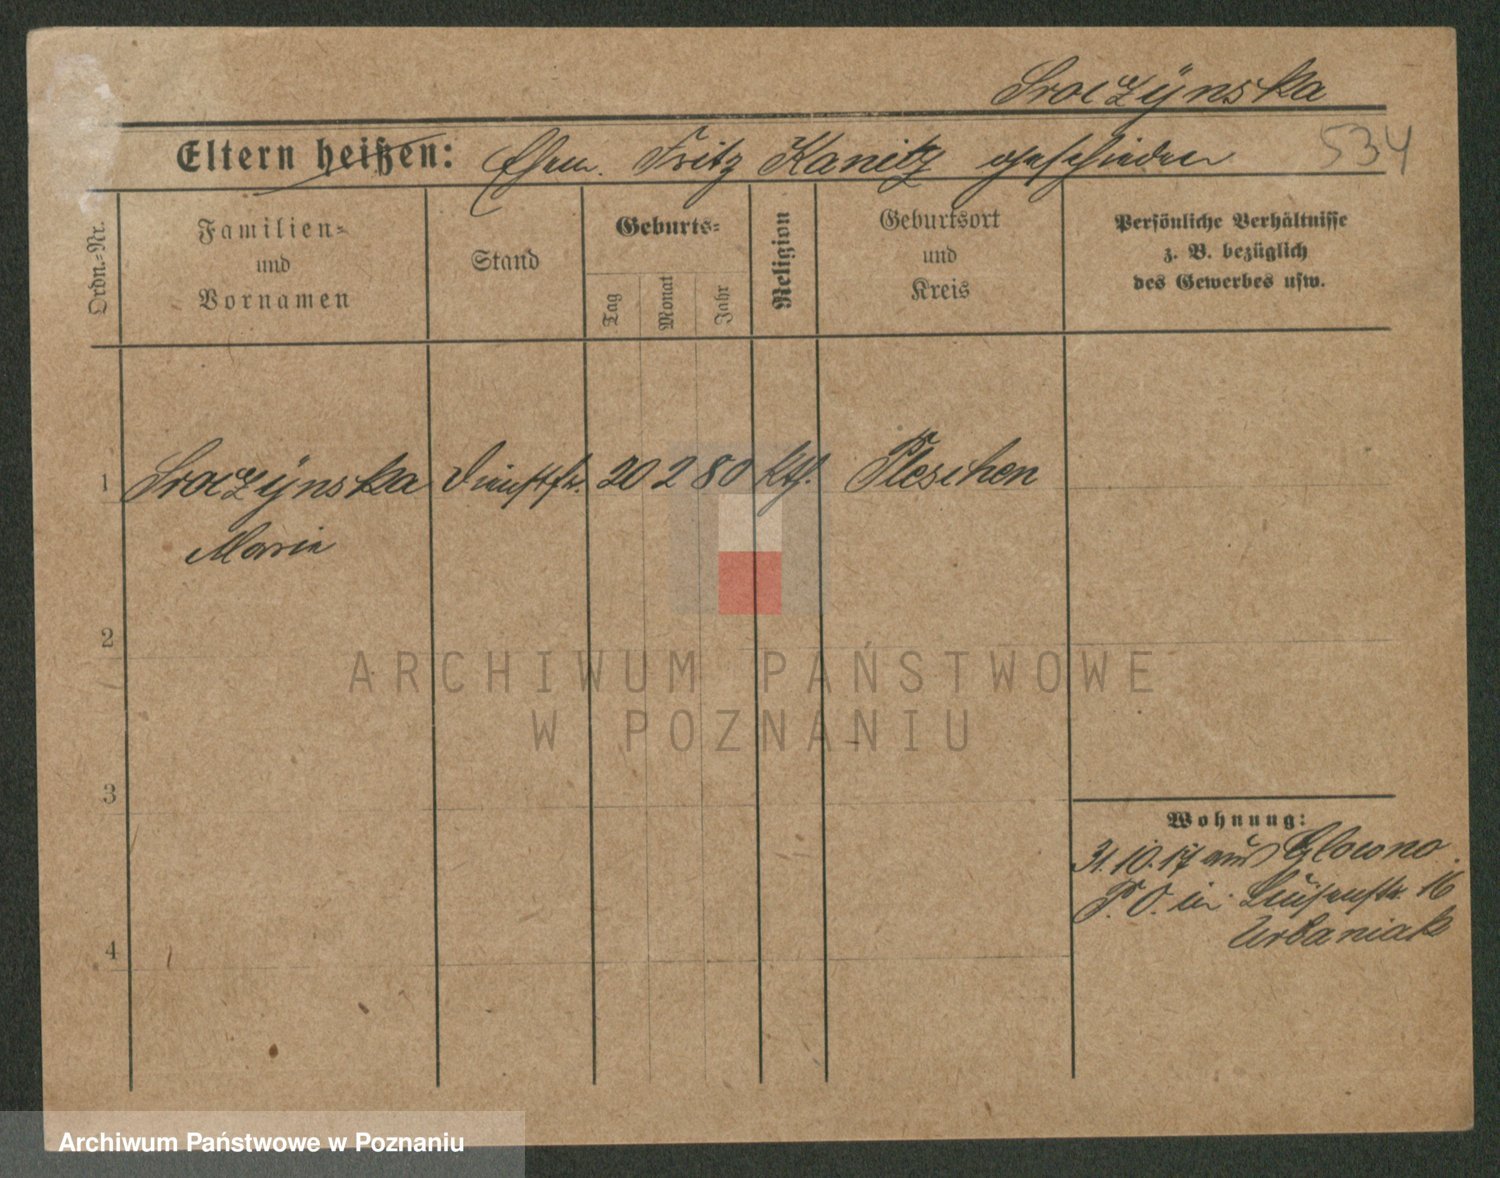 Sroczÿnska
534
Eltern heißen: Ehem. Fritz Kanitz geschieden
Ordn.=Nr.
Familien=
und
Vornamen
Stand
Geburts=
Tag
Monat
Jahr
Religion
Geburtsort
und
Kreis
Persönliche Verhältnisse
z. B. bezüglich
des Gewerbes usw.
1 Sroczÿnska Dienstfr. 20 2 80 kth. Pleschen
Marie
2
ARCHIWUM PAŃSTWOWE
W POZNANIU
3
Wohnung:
31.10.17 aus Glowno
P. O. in Luisenstr. 16
Urbaniak
4
Archiwum Państwowe w Poznaniu